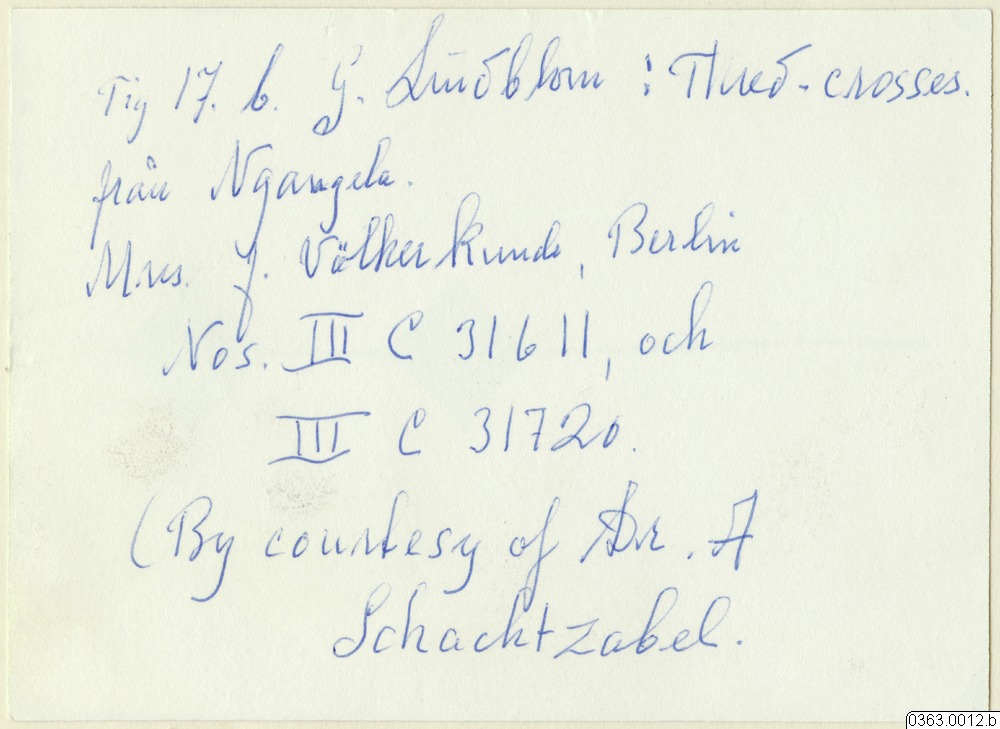 Fig 17. b. G. Lindblom : Thred-crosses.
från Ngangela.
Mus. f. Völkerkunde, Berlin
Nos. III C 31611, och
III C 31720.
(By courtesy of Dr. A
Schachtzabel.
0363.0012.b